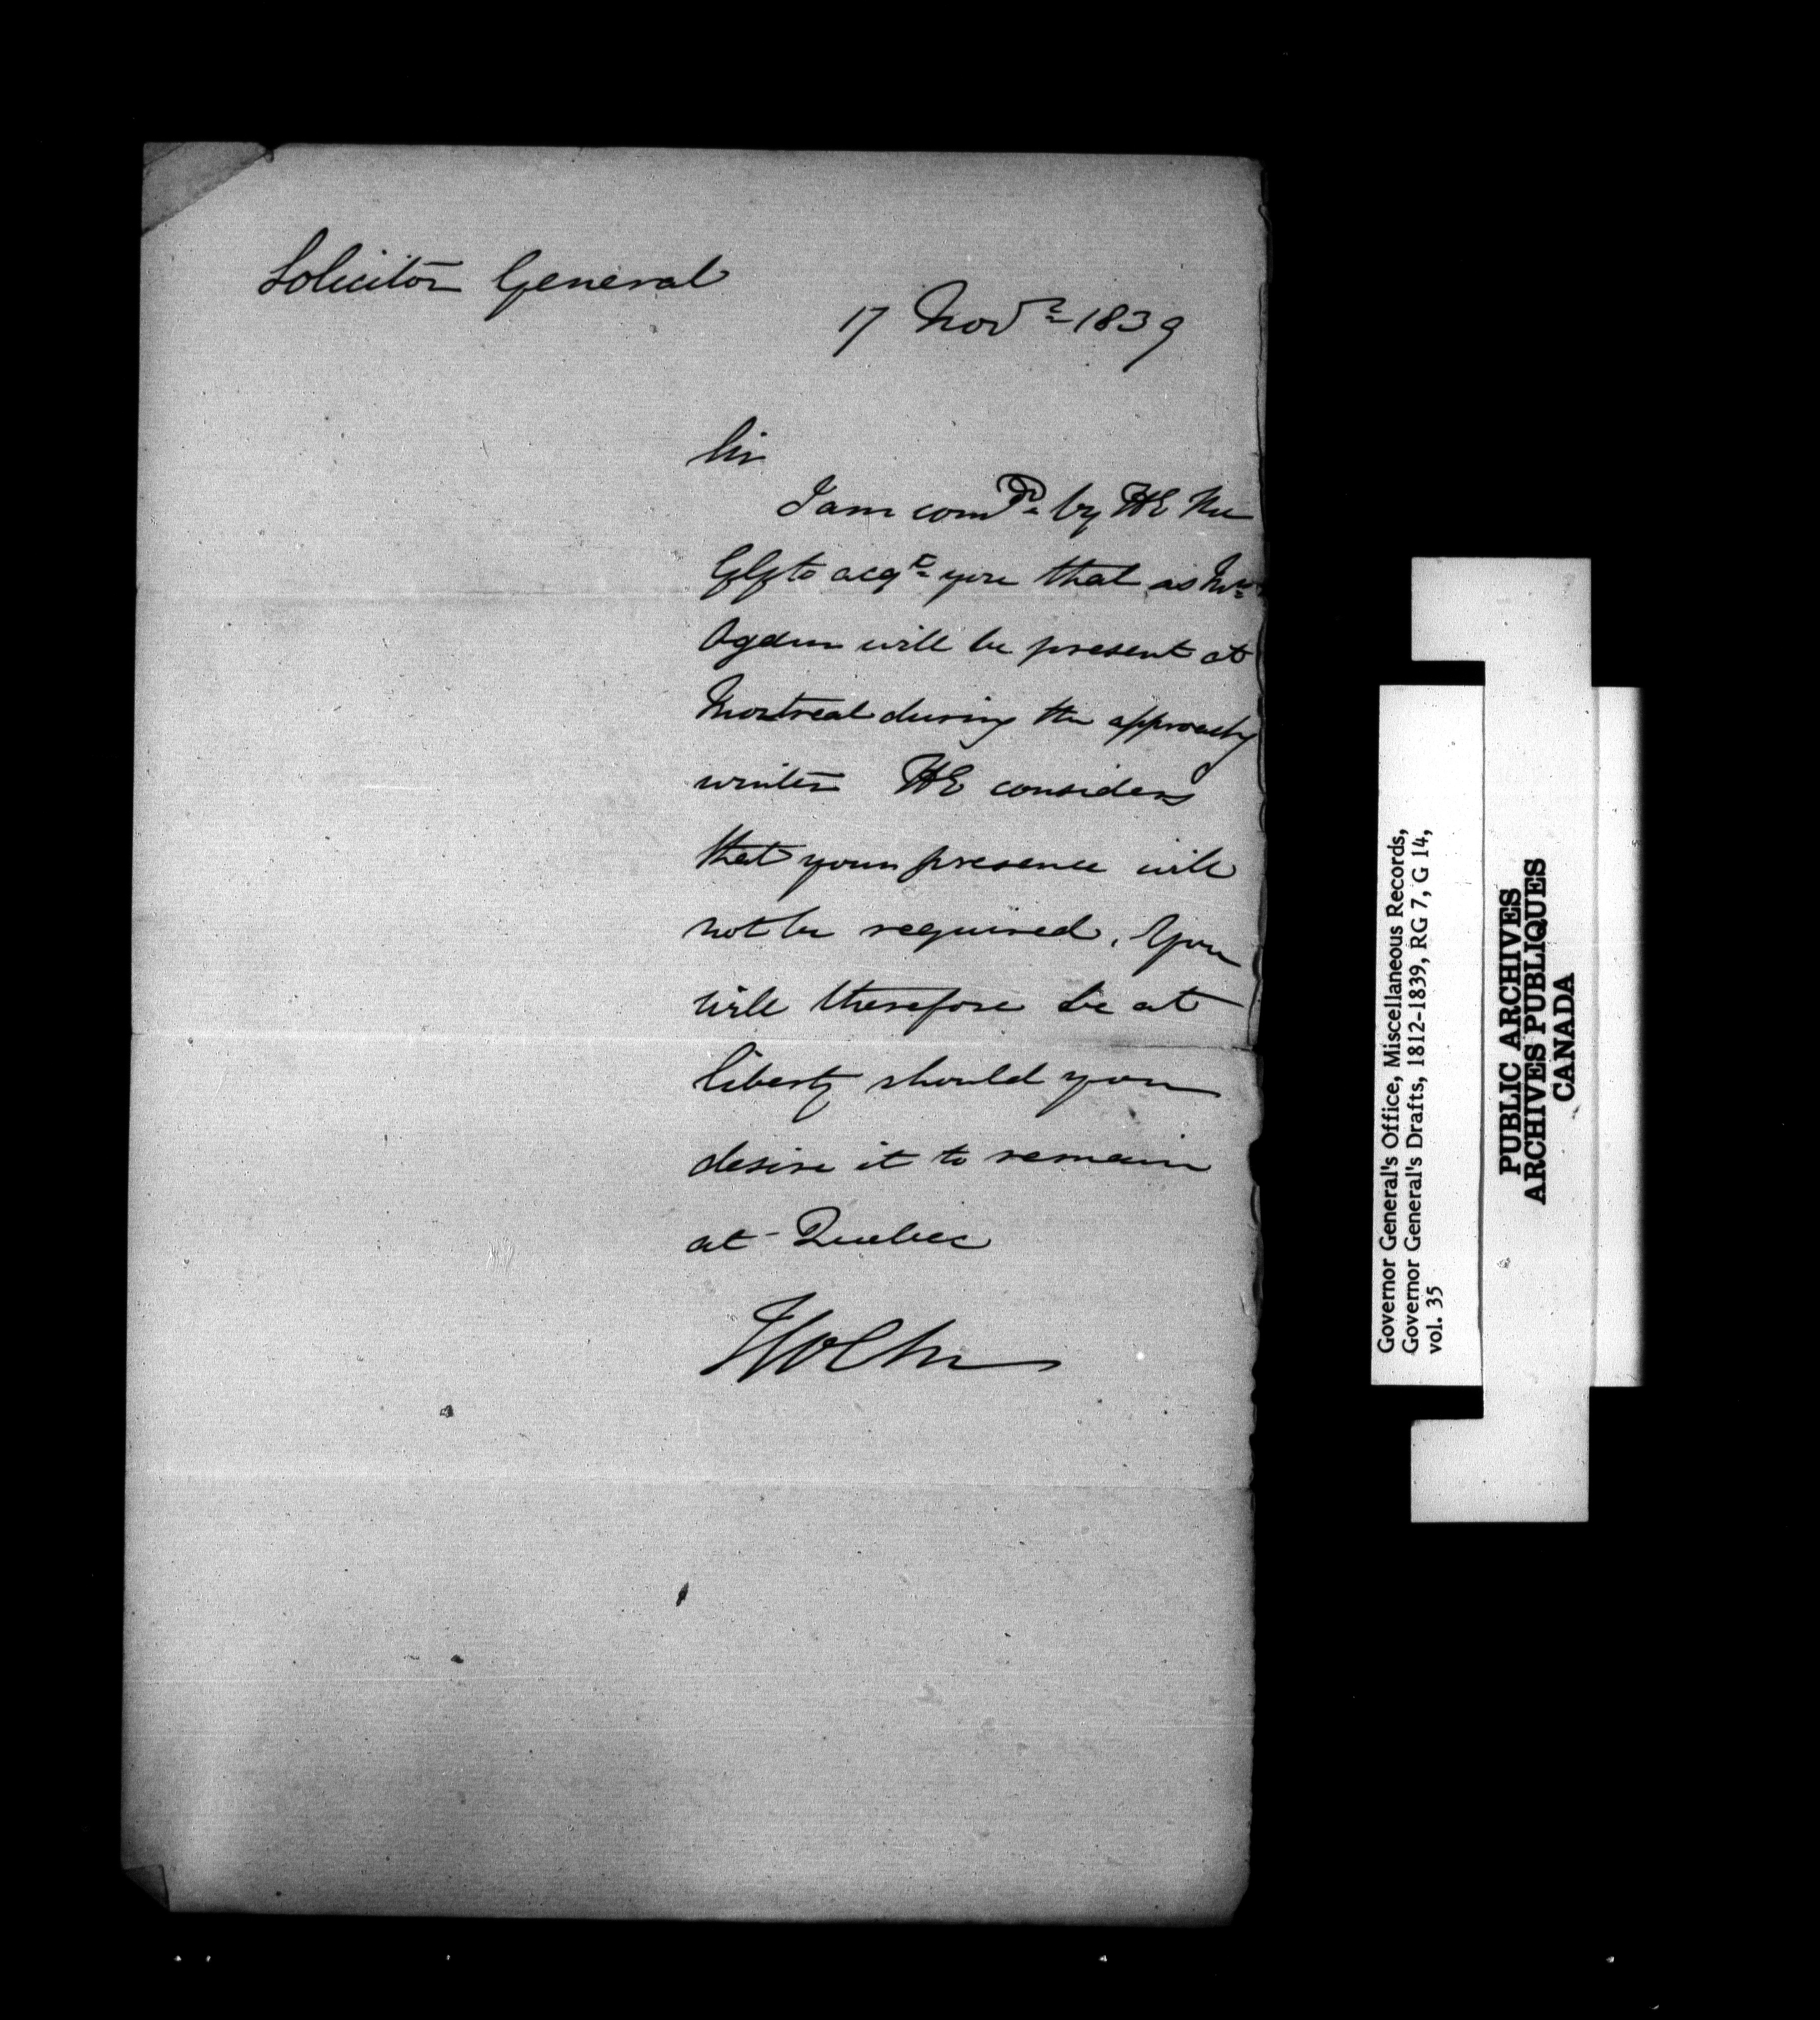 Solicitor General
17 Novr 1839
Sir
I am comd by HE the
GG to acqt you that as Mr
Ogden will be present at
Montreal during the approachg
winter HE considers
that your presence will
not be required. You
will therefore be at
liberty should you
desire it to remain
at Quebec
Governor General's Office, Miscellaneous Records,
Governor General's Drafts, 1812-1839, RG 7, G 14,
vol. 35
PUBLIC ARCHIVES
ARCHIVES PUBLIQUES
CANADA